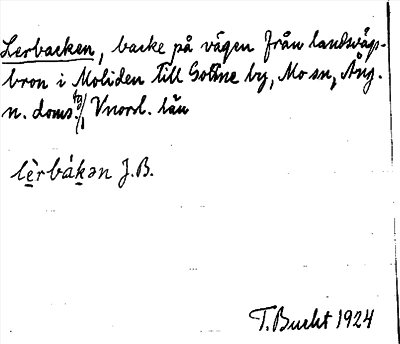 Lerbacken, backe på vägen från landsvägs-
bron i Moliden till Gottne by, Mo sn, Ång.
n. doms. tg, Vnorrl. län
lèrbákən J.B.
T. Bucht 1924